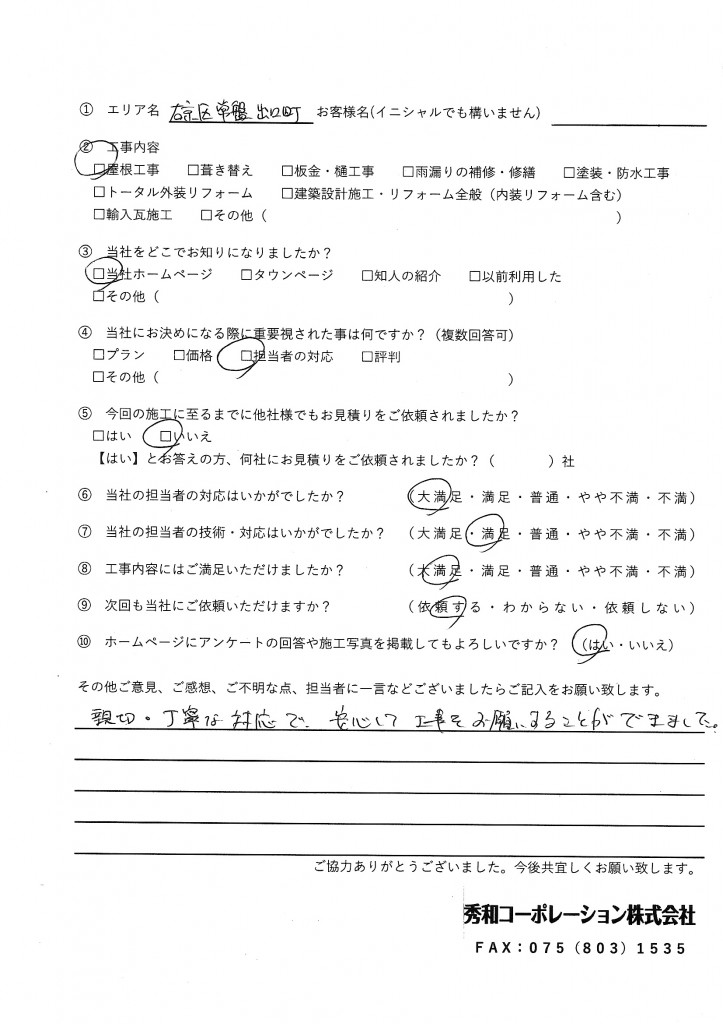 ① エリア名 右京区常盤出口町 お客様名(イニシャルでも構いません)
② 工事内容
□屋根工事 □葺き替え □板金・樋工事 □雨漏りの補修・修繕 □塗装・防水工事
□トータル外装リフォーム □建築設計施工・リフォーム全般（内装リフォーム含む）
□輸入瓦施工 □その他（ ）
③ 当社をどこでお知りになりましたか？
□当社ホームページ □タウンページ □知人の紹介 □以前利用した
□その他（ ）
④ 当社にお決めになる際に重要視された事は何ですか？（複数回答可）
□プラン □価格 □担当者の対応 □評判
□その他（ ）
⑤ 今回の施工に至るまでに他社様でもお見積りをご依頼されましたか？
□はい □いいえ
【はい】とお答えの方、何社にお見積りをご依頼されましたか？（ ）社
⑥ 当社の担当者の対応はいかがでしたか？ （大満足・満足・普通・やや不満・不満）
⑦ 当社の担当者の技術・対応はいかがでしたか？ （大満足・満足・普通・やや不満・不満）
⑧ 工事内容にはご満足いただけましたか？ （大満足・満足・普通・やや不満・不満）
⑨ 次回も当社にご依頼いただけますか？ （依頼する・わからない・依頼しない）
⑩ ホームページにアンケートの回答や施工写真を掲載してもよろしいですか？ （はい・いいえ）
その他ご意見、ご感想、ご不明な点、担当者に一言などございましたらご記入をお願い致します。
親切・丁寧な対応で、安心して工事をお願いすることができました。
ご協力ありがとうございました。今後共宜しくお願い致します。
秀和コーポレーション株式会社
FAX：075（803）1535